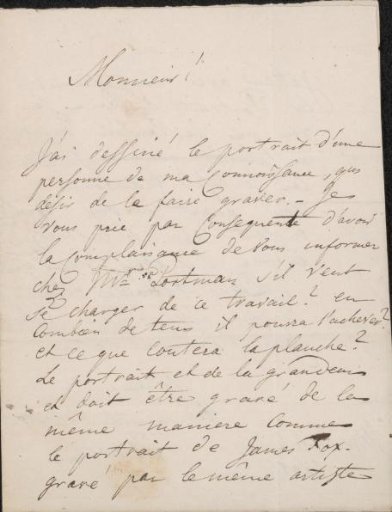 Monsieur!
J'ai dessiné le portrait d'une
personne de ma connoissance, qui
désir de la faire graver. - Je
vous prie par consequent d'avoir
la complaisance de vous informer
chez Mr. Portman s'il veut
se charger de ce travail? en
combien de tems il pourra l'achever?
et ce que coutera la planche?
Le portrait est de la grandeur
et doit être gravé de la
même maniere comme
le portrait de James Fox.
gravé par le même artiste